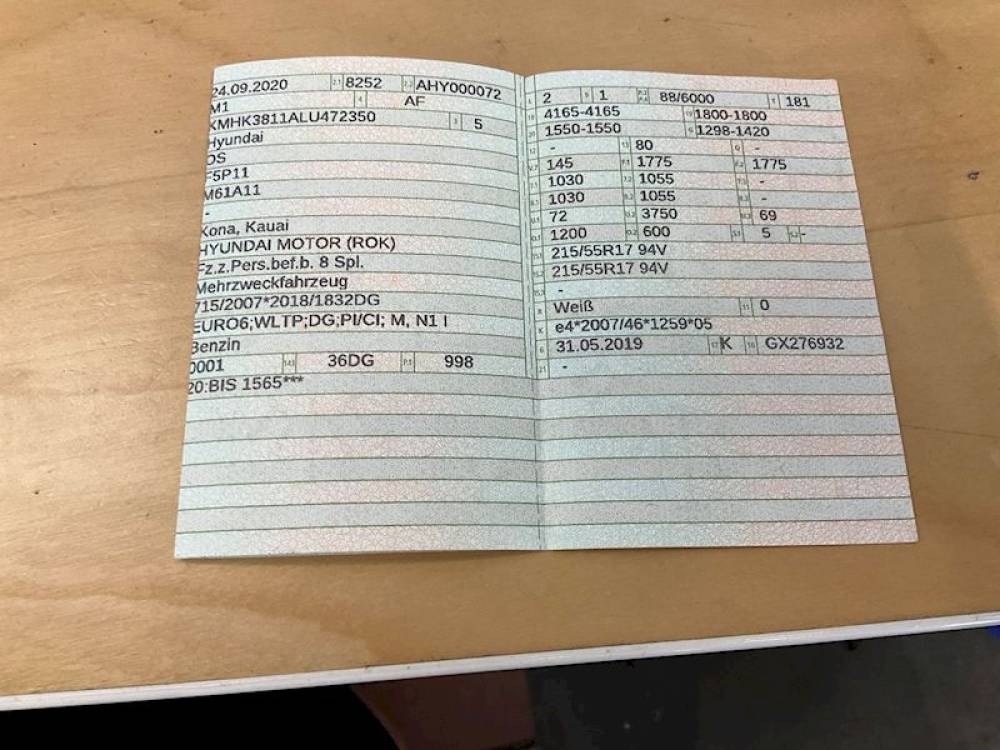 24.09.2020 2.1 8252 2.2 AHY000072
M1 4 AF
KMHK3811ALU472350 3 5
Hyundai
OS
F5P11
M61A11
-
Kona, Kauai
HYUNDAI MOTOR (ROK)
Fz.z.Pers.bef.b. 8 Spl.
Mehrzweckfahrzeug
715/2007*2018/1832DG
EURO6;WLTP;DG;PI/CI; M, N1 I
Benzin
0001 36DG P.1 998
20:BIS 1565***
L 2 9 1 P.2 P.4 88/6000 T 181
18 4165-4165 19 1800-1800
20 1550-1550 G 1298-1420
12 - 13 80 Q -
V.7 145 F.1 1775 F.2 1775
7.1 1030 7.2 1055 7.3 -
8.1 1030 8.2 1055 8.3 -
U.1 72 U.2 3750 U.3 69
O.1 1200 O.2 600 S.1 5 S.2 -
15.1 215/55R17 94V
15.2 215/55R17 94V
15.3 -
R Weiß 11 0
K e4*2007/46*1259*05
6 31.05.2019 17 K 16 GX276932
21 -